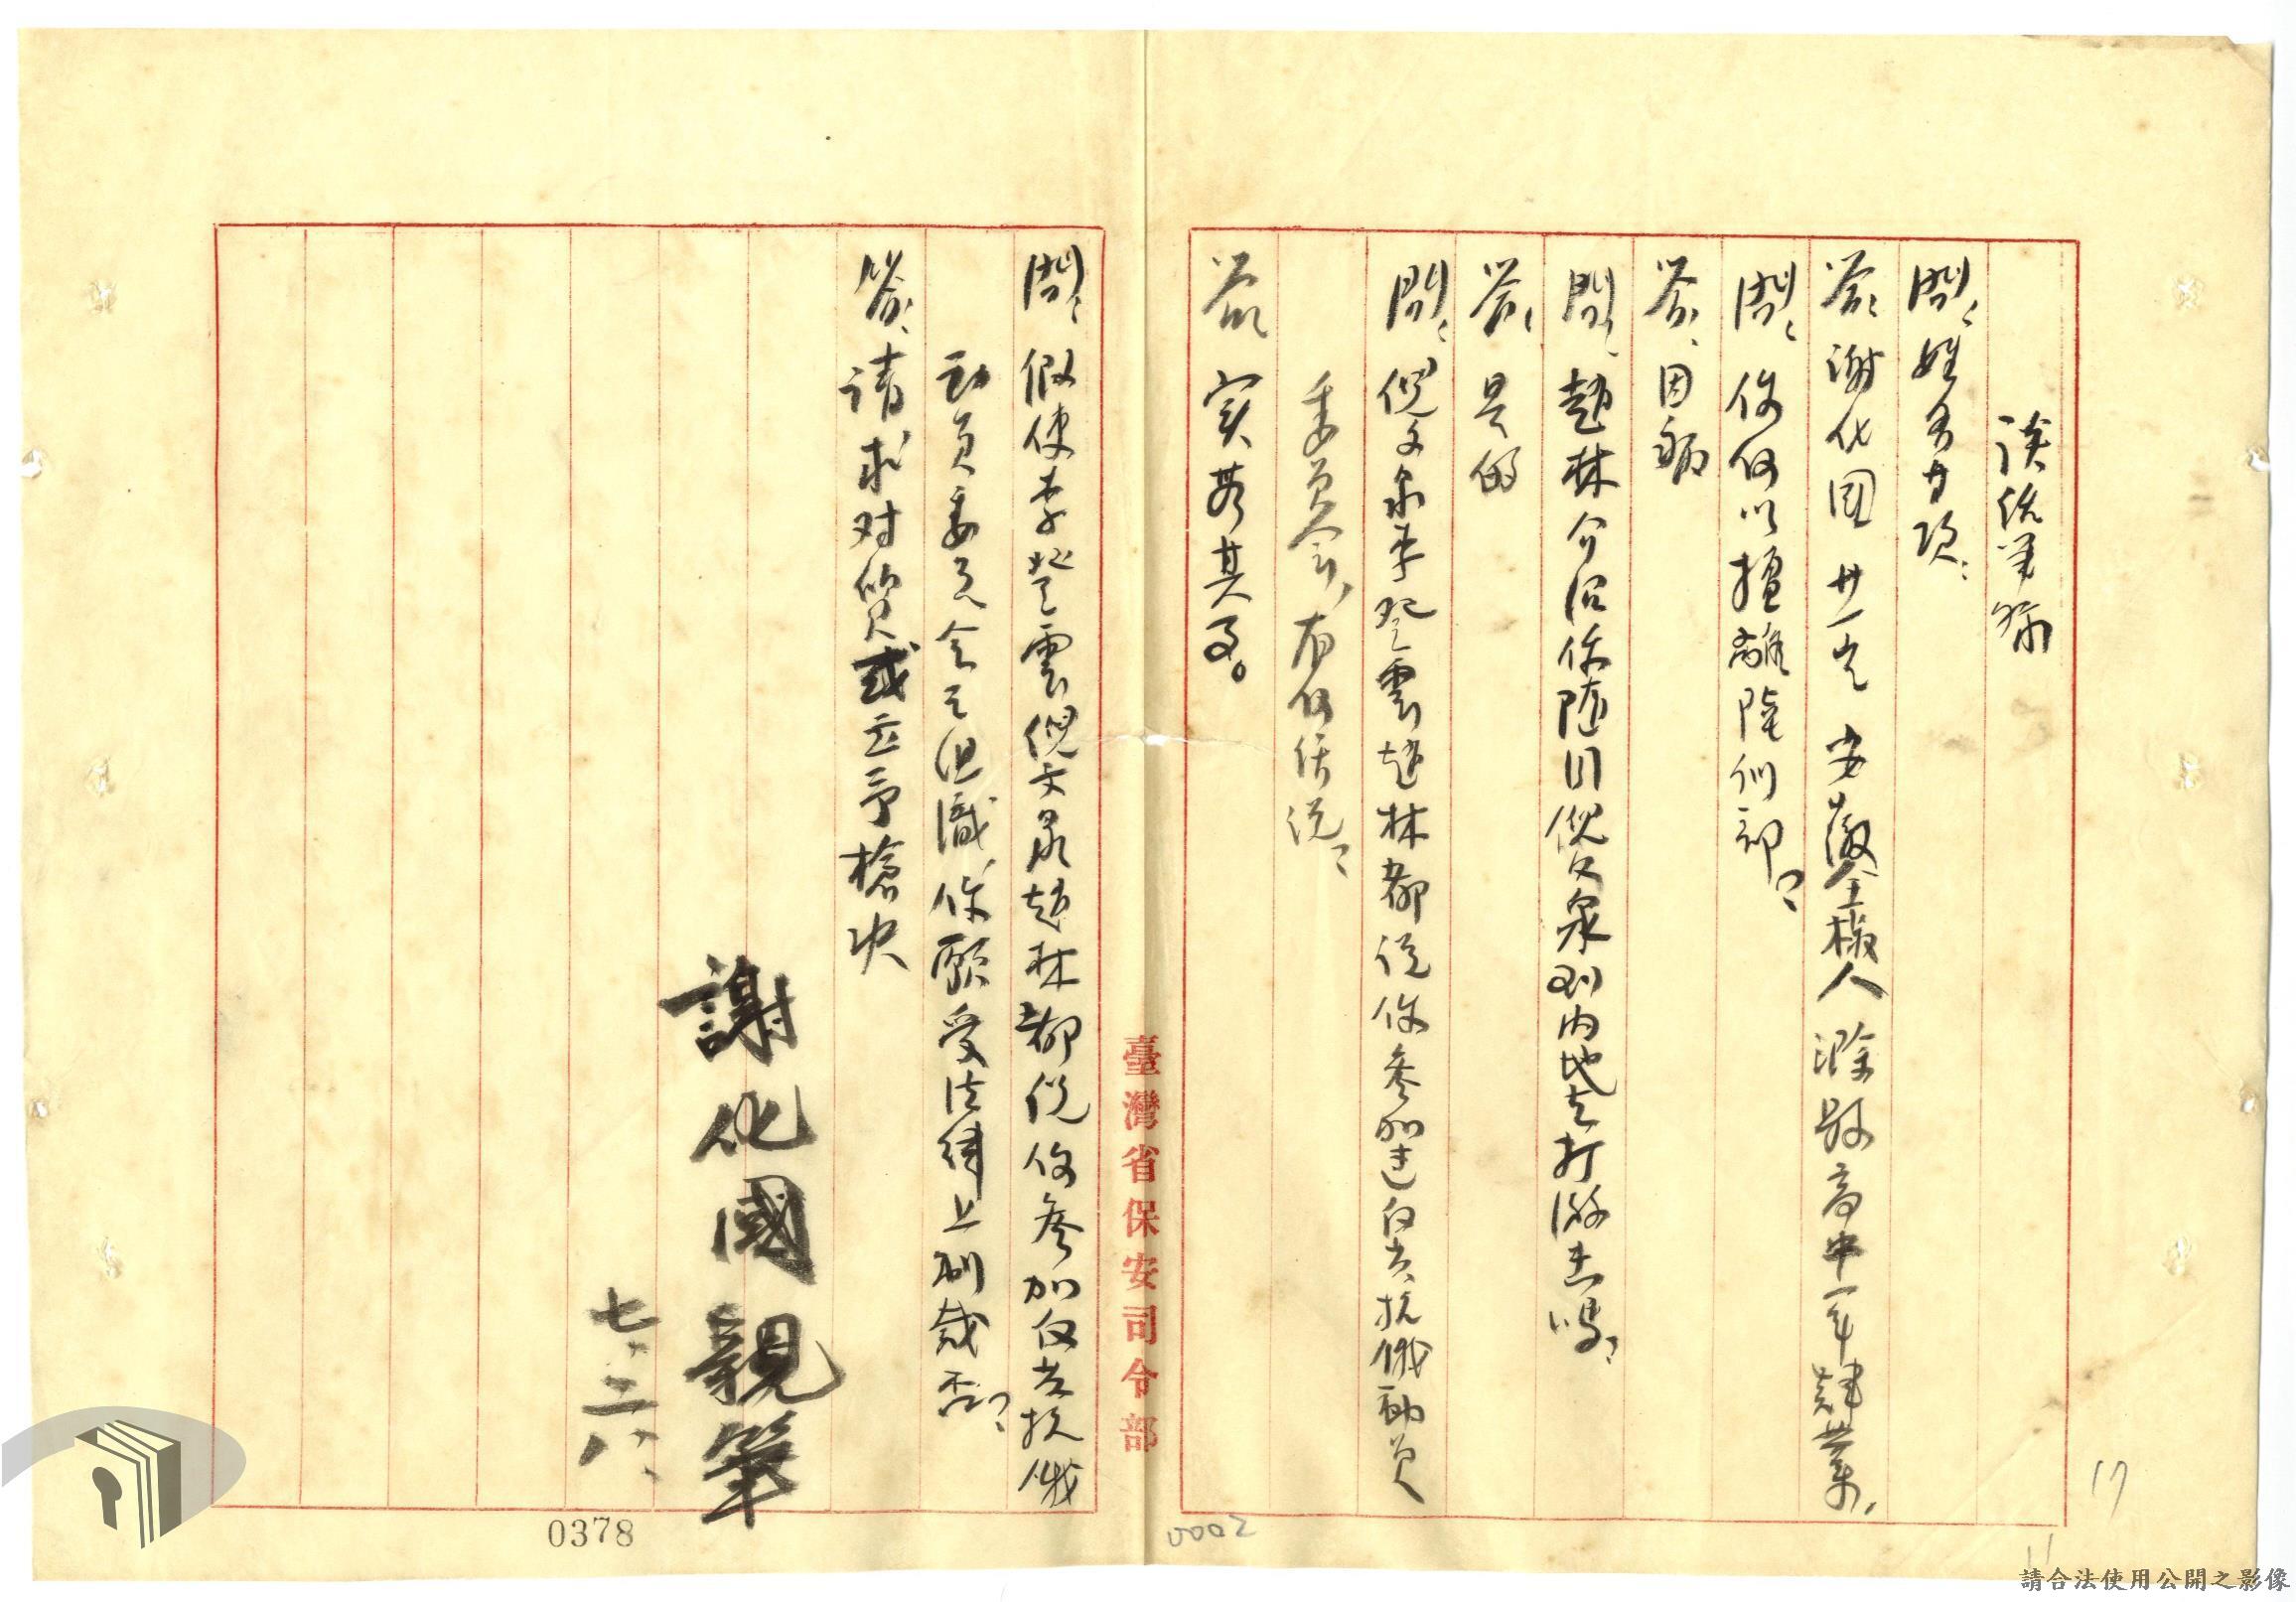 談話筆錄
問、姓名年
答、謝化國 廿一 安徽全椒人 滁縣高中一年肄業、
問、你何以擅離陸訓部？
答、因病
問、趙林介紹你隨同倪文泉到內地去打游击嗎？
答、是的
問、倪文泉李登雲趙林都说你參加进反共抗俄動員
委員会、有何话说？
答、實無其事。
問、假使李登雲倪文泉趙林都说你參加反共抗俄
動員委員会之組織、你願受法律上制裁否？
答、請求对質或立予槍决
謝化國親筆
七、二八、
臺灣省保安司令部
0378
0002
17
請合法使用公開之影像